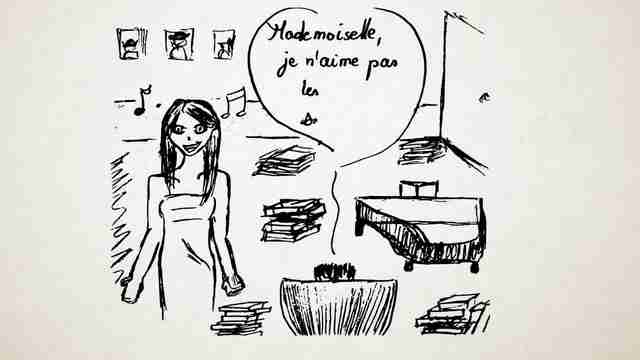 Mademoiselle,
je n'aime pas
les